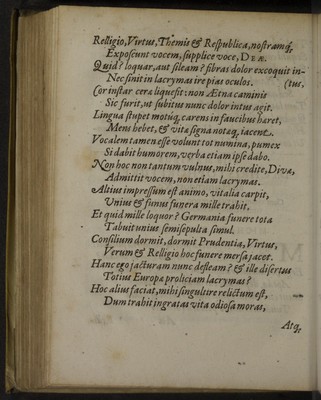 Relligio, Virtus, Themis & Respublica, nostramq́,
Exposcunt vocem, supplice voce, DEÆ.
Quid? loquar, aut sileam? fibras dolor excoquit in-
Nec sinit in lacrymas ire pias oculos. (tus,
Cor instar ceræ liquefit: non Ætna caminis
Sic furit, ut subitus nunc dolor intus agit.
Lingua stupet motuq́, carens in faucibus hæret,
Mens hebet, & vitæ signa notæq́, iacent.
Vocalem tamen esse volunt tot numina, pumex
Si dabit humorem, verba etiam ipse dabo.
Non hoc non tantum vulnus, mihi credite, Divæ,
Admittit vocem, non etiam lacrymas.
Altius impressum est animo, vitalia carpit,
Vnius & funus funera mille trahit.
Et quid mille loquor? Germania funere tota
Tabuit unius semisepulta simul.
Consilium dormit, dormit Prudentia, Virtus,
Verum & Relligio hoc funere mersa jacet.
Hanc ego jacturam nunc defleam? & ille disertus
Totius Europæ proliciam lacrymas?
Hoc alius faciat, mihi singultire relictum est,
Dum trahit ingratas vita odiosa moras,
Atq́,